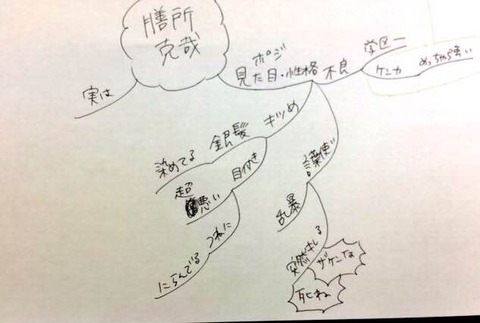 膳所
克哉
実は
ポジ
見た目・性格
不良
学区一
ケンカ
めっちゃ強い
キツめ
銀髪
染めてる
目付き
超
悪い
つねに
にらんでる
言葉使い
乱暴
突然キレる
ザケンな
死ね